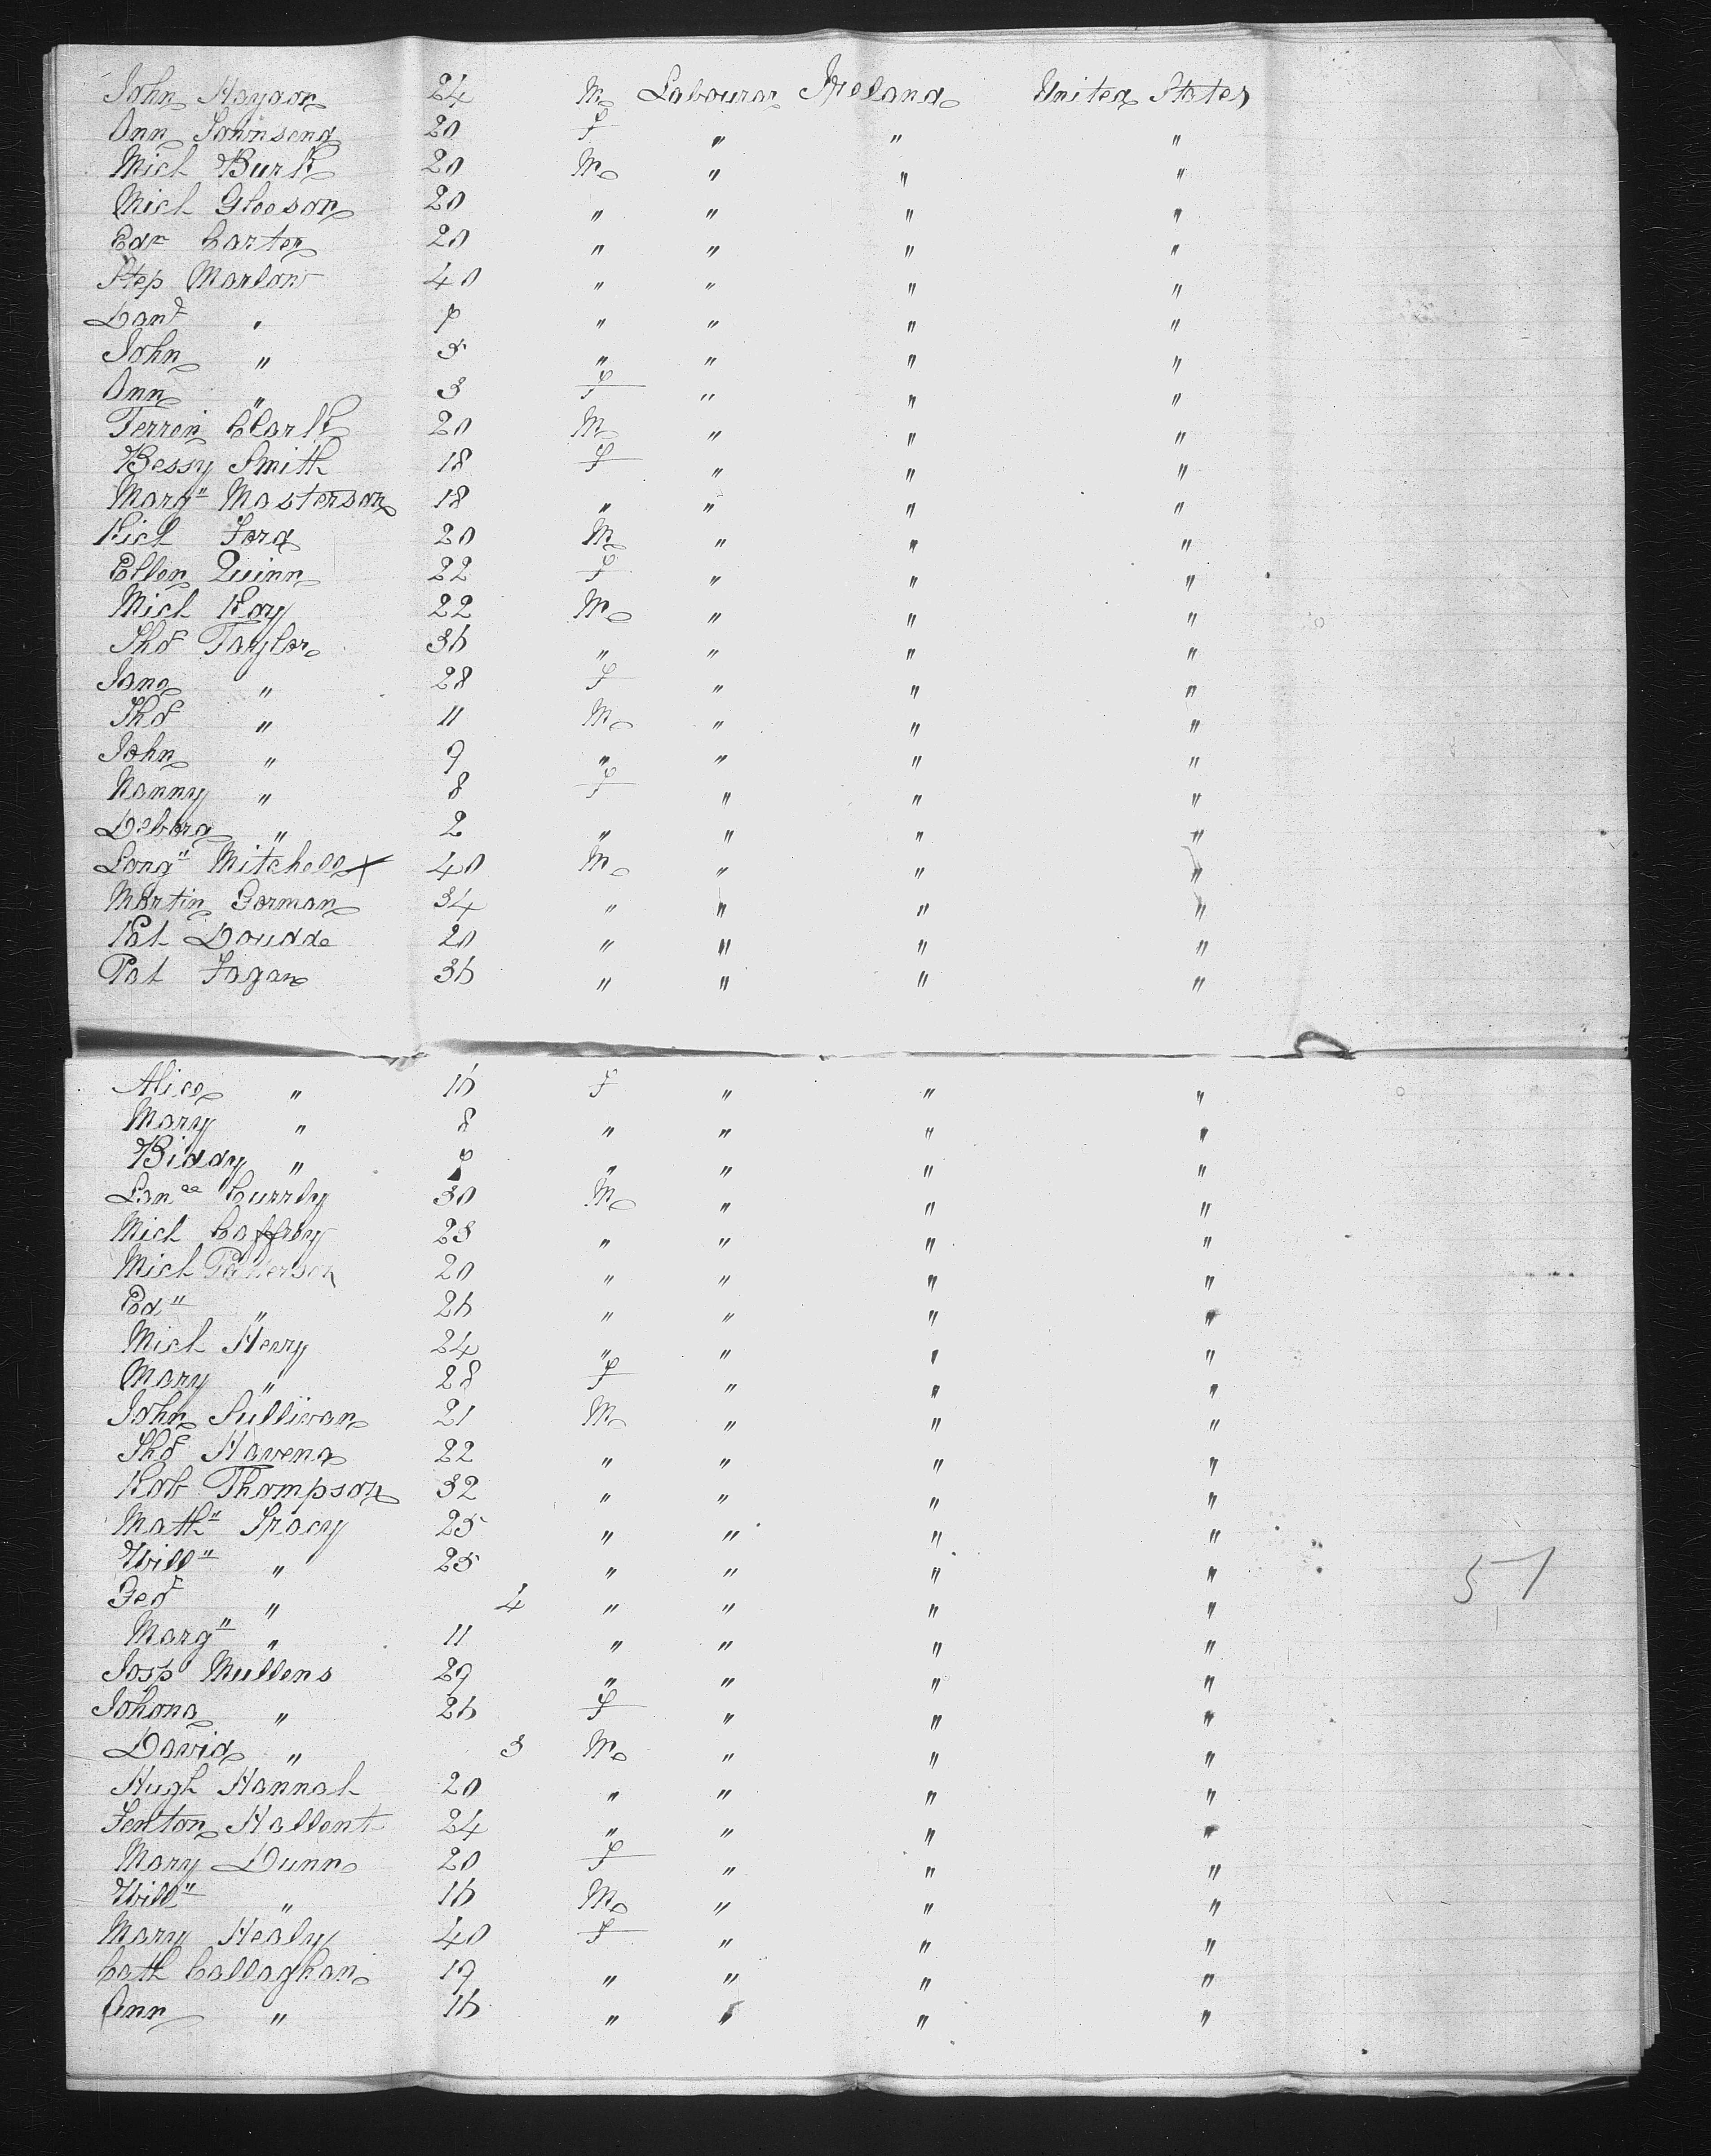 John Haydon 24 M Labourer Ireland United States
Ann Townsend 20 F " " "
Mich Burk 20 M " " "
Mich Gleeson 20 " " " "
Edr Carter 20 " " " "
Step Marlow 40 " " " "
Danl " 7 " " " "
John " 5 " " " "
Ann " 3 F " " "
Terren Clark 20 M " " "
Bessy Smith 18 F " " "
Marg" Masterson 18 " " " "
Rich Ford 20 M " " "
Ellen Quinn 22 F " " "
Mich Kay 22 M " " "
Thos Taylor 36 " " " "
Jane " 28 F " " "
Thos " 11 M " " "
John " 9 " " " "
Nanny " 8 F " " "
Debora " 2 " " " "
Long" Mitchell x 40 M " " "
Martin Gorman 34 " " " "
Pat Doudde 20 " " " "
Pat Fagan 36 " " " "
Alice " 16 F " " "
Mary " 8 " " " "
Biddy " " " " "
Lance Currly 30 M " " "
Mich Caffrey 23 " " " "
Mich Patterson 20 " " " "
Ed" " 26 " " " "
Mich Henry 24 " " " "
Mary " 28 F " " "
John Sullivan 21 M " " "
Thos Havend 22 " " " "
Rob Thompson 32 " " " "
Math" Tracy 25 " " " "
Will" " 25 " " " "
Geo " 4 " " " "
Marg" " 11 " " " "
Josp Mullens 29 " " " "
Johona " 26 F " " "
David " 3 M " " "
Hugh Hannah 20 " " " "
Fenton Hallent 24 " " " "
Mary Dunn 20 F " " "
Will" " 16 M " " "
Mary Healy 40 F " " "
Cath Callaghan 19 " " " "
Ann " 16 " " " "
51